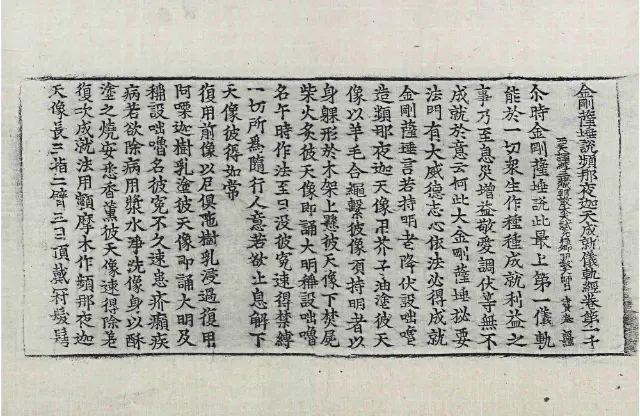 金剛薩埵說頻那夜迦天成就儀軌經卷第一
尒時金剛薩埵說此最上第一儀軌
能於一切衆生作種種成就利益之
事乃至息災增益敬愛調伏等無不
成就於意云何此大金剛薩埵祕要
法門有大威德志心依法必得成就
金剛薩埵言若持明者降伏設咄嚕
造頻那夜迦天像用芥子油塗彼天
像以羊毛合繩繫彼像項持明者以
身躶形於木架上懸彼天像下焚屍
柴火炙彼天像即誦大明稱設咄嚕
名午時作法至日没彼寃速得禁縛
一切所爲隨行人意若欲止息解下
天像彼得如常
復用前像以尼俱陁樹乳浸過復用
阿哩迦樹乳塗彼天像即誦大明及
稱設咄嚕名彼寃不久速患疥癩疾
病若欲除病用漿水淨洗像身以酥
塗之燒安悉香薰彼天像速得除差
復次成就法用顐摩木作頻那夜迦
天像長三指二臂三目頂戴